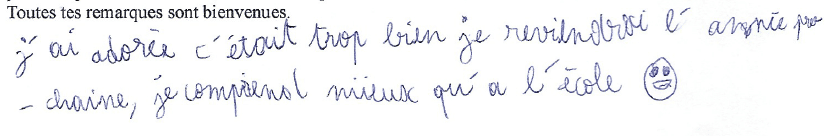 Toutes tes remarques sont bienvenues
j'ai adorée c'était trop bien je reviendroi l'année pro
- chaine, je comprend mieux qu'a l'école